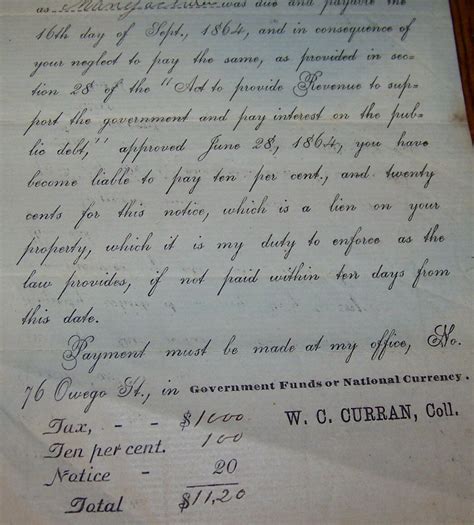 as Manufacturer was due and payable the
16th day of Sept., 1864, and in consequence of
your neglect to pay the same, as provided in sec=
tion 28 of the "Act to provide Revenue to sup=
port the government and pay interest on the pub=
lic debt," approved June 28, 1864, you have
become liable to pay ten per cent., and twenty
cents for this notice, which is a lien on your
property, which it is my duty to enforce as the
law provides, if not paid within ten days from
this date.
Payment must be made at my office, No.
76 Owego St., in Government Funds or National Currency.
W. C. CURRAN, Coll.
Tax, - - $1000
Ten per cent. 100
Notice - 20
Total $11,20